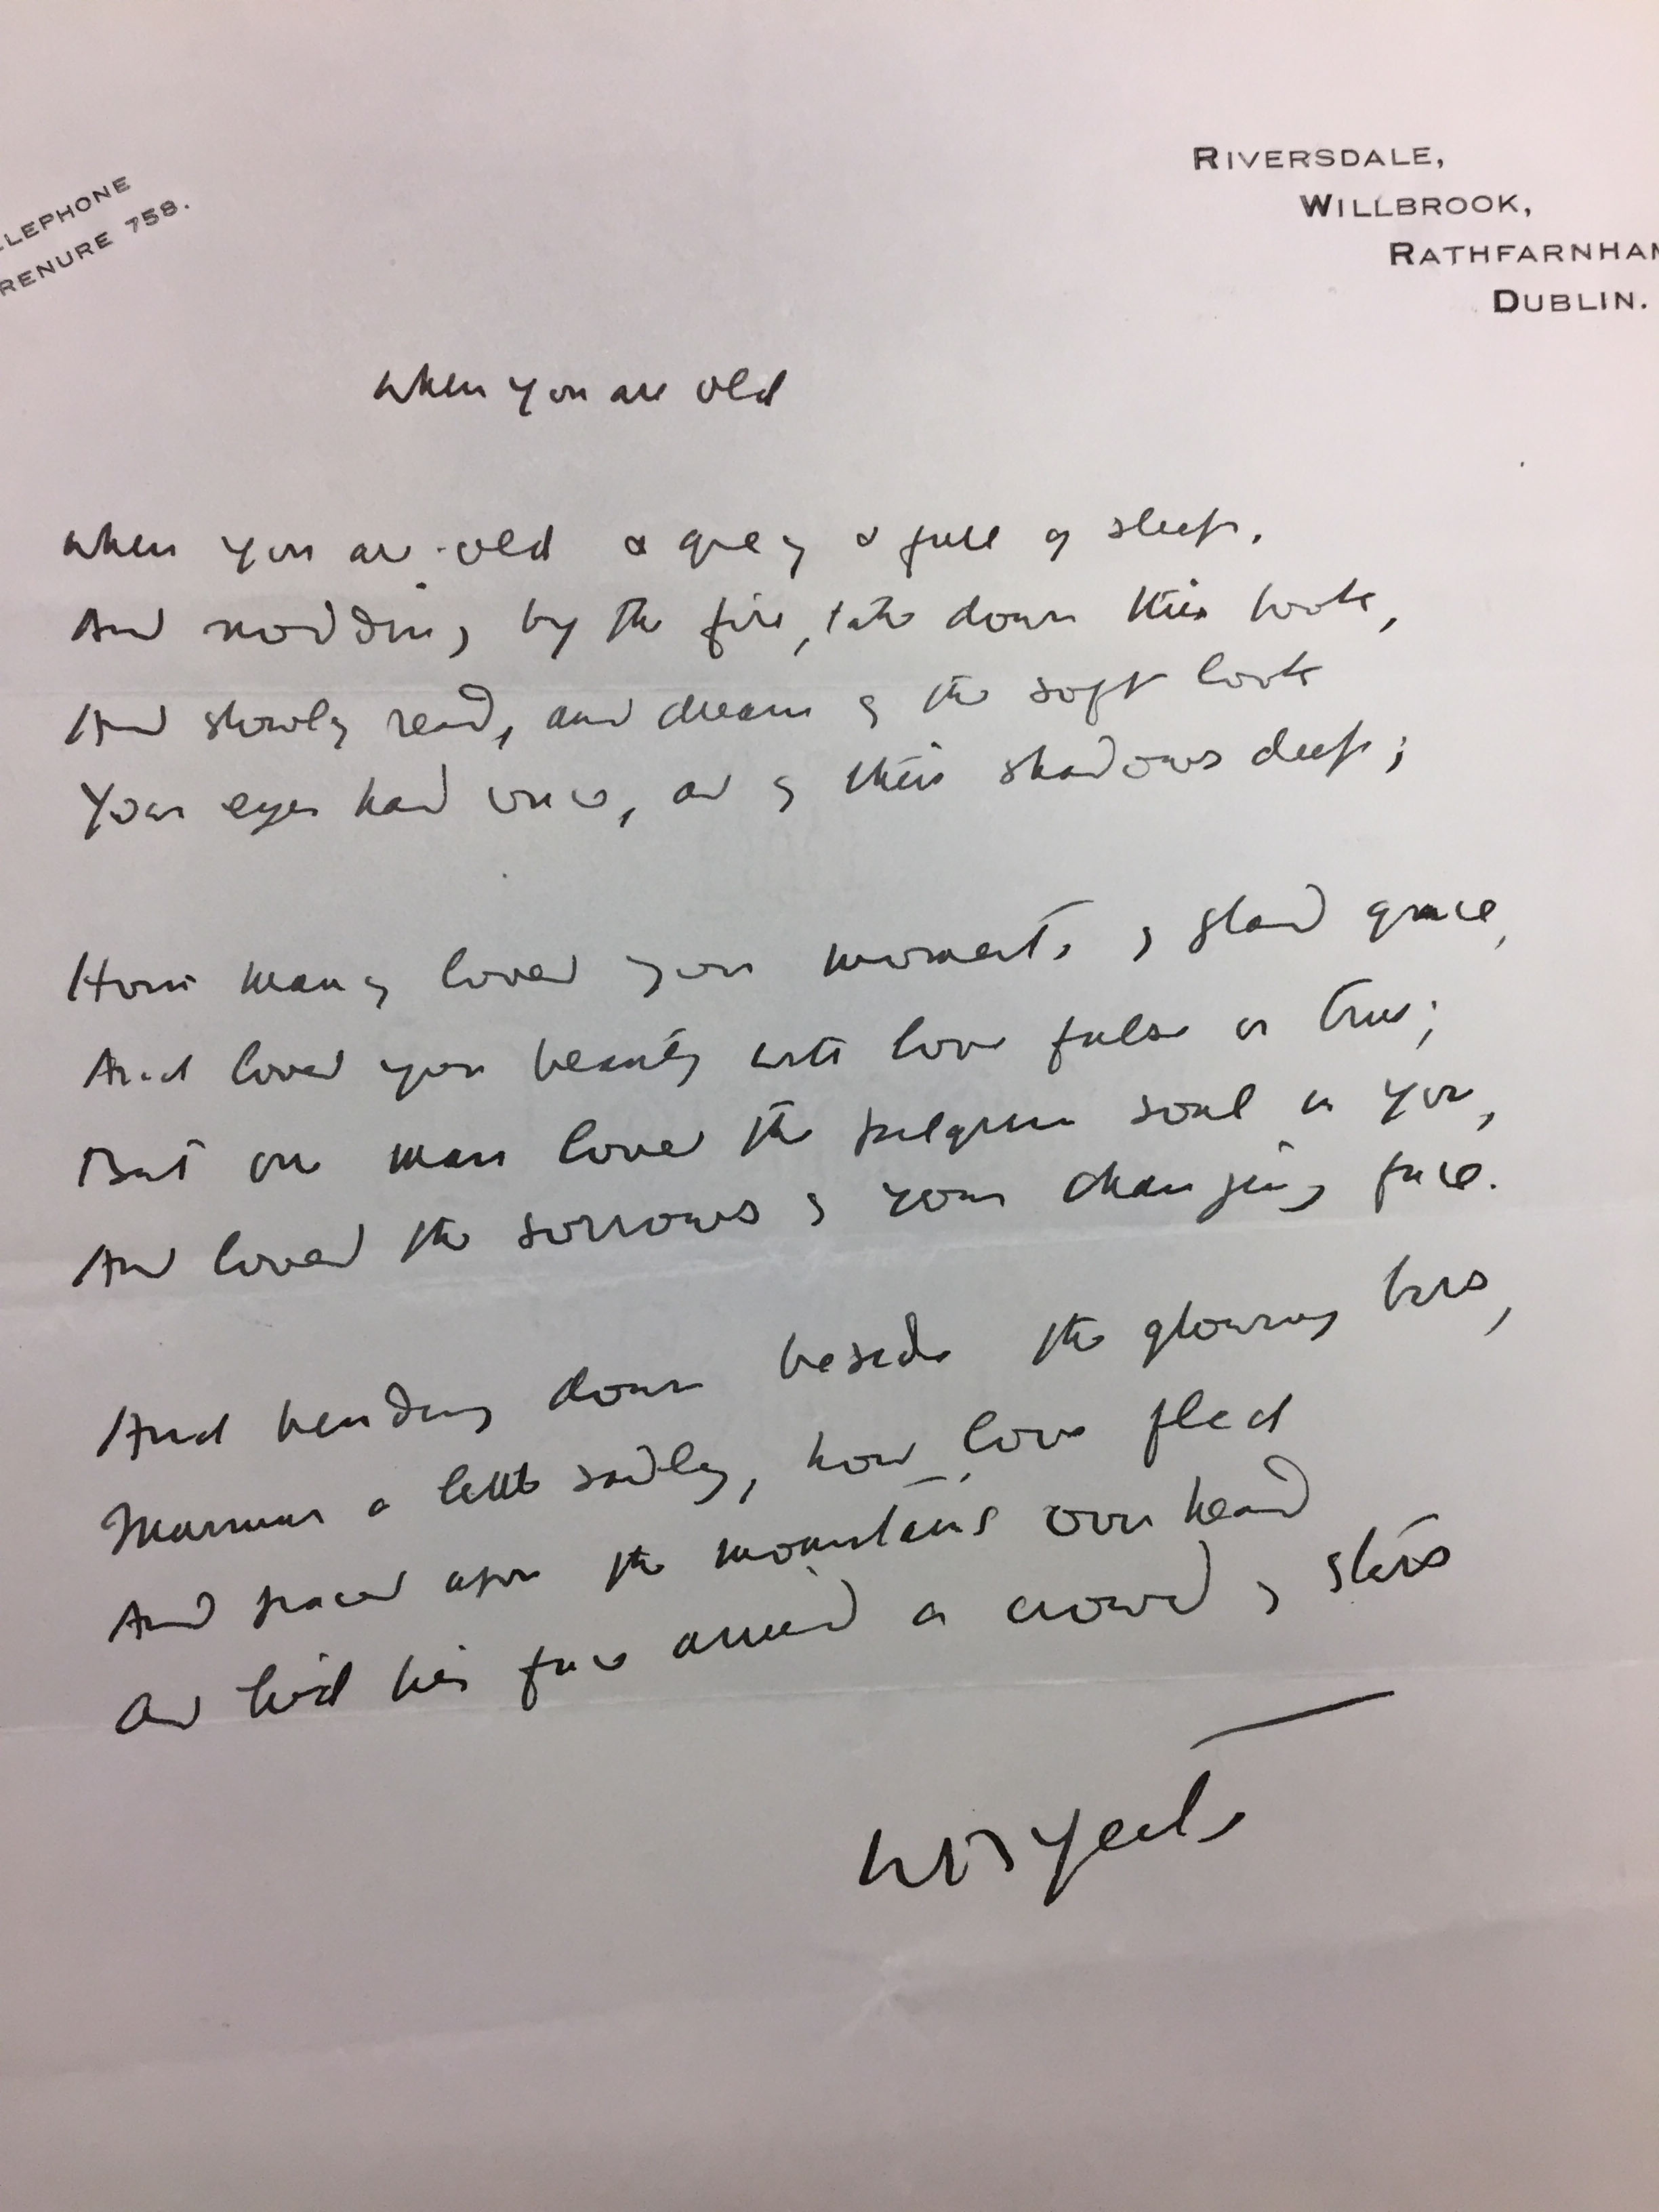 LEPHONE
RENURE 758.
RIVERSDALE,
WILLBROOK,
RATHFARNHAM
DUBLIN.
When you are old
When you are old & grey & full of sleep,
And nodding by the fire, take down this book,
And slowly read, and dream of the soft look
Your eyes had once, and of their shadows deep;
How many loved your moments of glad grace,
And loved your beauty with love false or true;
But one man loved the pilgrim soul in you,
And loved the sorrows of your changing face.
And bending down beside the glowing bars,
Murmur a little sadly, how love fled
And paced upon the mountains over head
And hid his face amid a crowd of stars
WB Yeats